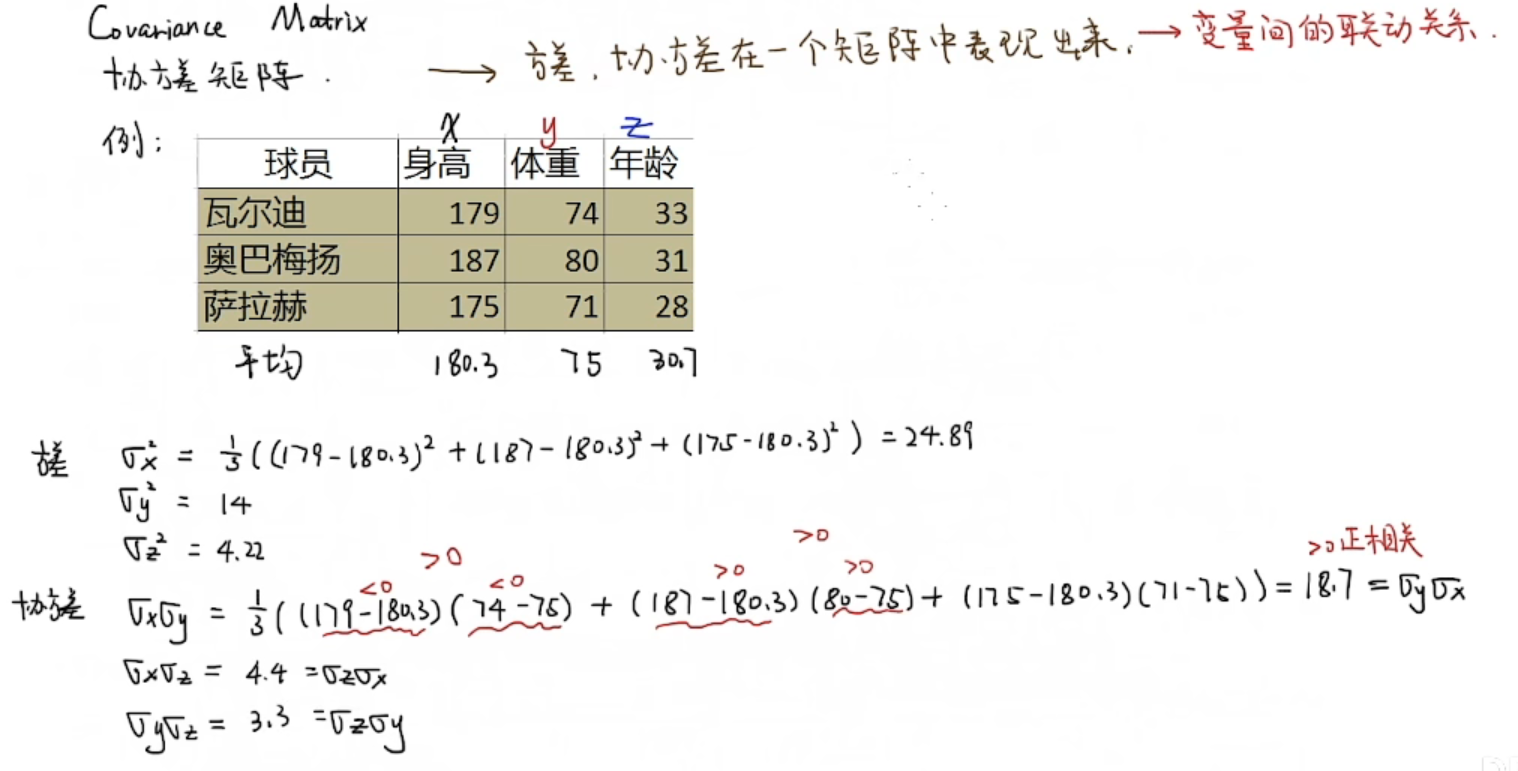 Covariance Matrix
协方差矩阵. → 方差,协方差在一个矩阵中表现出来. → 变量间的联动关系.
例: x y z
球员 身高 体重 年龄
瓦尔迪 179 74 33
奥巴梅扬 187 80 31
萨拉赫 175 71 28
平均 180.3 75 30.7
方差 σx² = 1/3((179-180.3)² + (187-180.3)² + (175-180.3)²) = 24.89
σy² = 14
σz² = 4.22
>0 >0 >0正相关
<0 <0 >0 >0
协方差 σxσy = 1/3((179-180.3)(74-75) + (187-180.3)(80-75) + (175-180.3)(71-75)) = 18.7 = σyσx
σxσz = 4.4 = σzσx
σyσz = 3.3 = σzσy